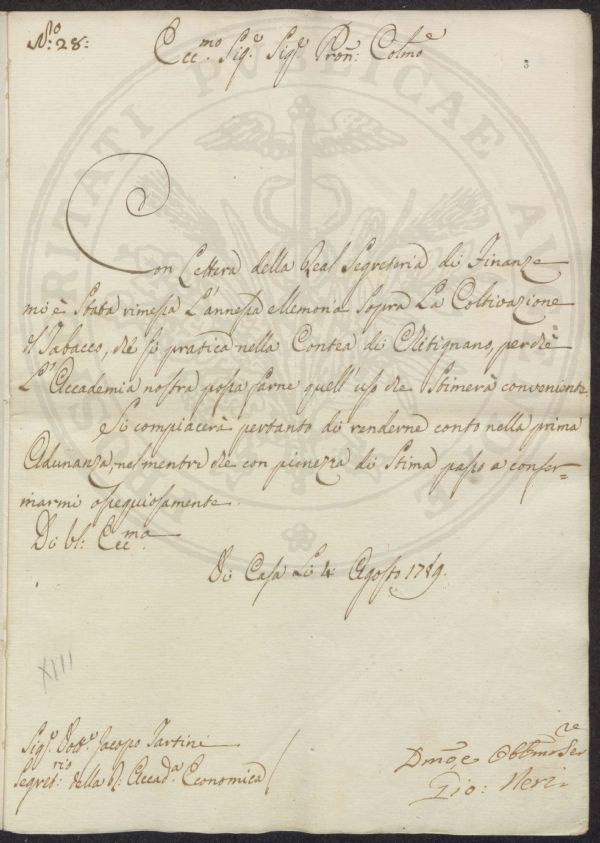 N:ro 28:
Ecc:mo Sig:e Sig:e Pron: Colmo
3
Con Lettera della Real Segreteria di Finanze
mi è stata rimessa l'annessa Memoria sopra la Coltivazione
del Tabacco, che si pratica nella Contea di Chitignano, perchè
l'Accademia nostra possa farne quell'uso che stimerà conveniente.
Si compiacerà pertanto di renderne conto nella prima
Adunanza, nel mentre che con pienezza di Stima passo a confer=
marmi ossequiosamente.
Di VS: Ecc:ma
Di Casa Li 4 Agosto 1789.
XIII
Sig:e Dott:e Jacopo Tartini
Segret:rio della R: Accad:a Economica
Dmo, e Obbmo Serre
Gio: Neri
VERITATI PUBLICAE